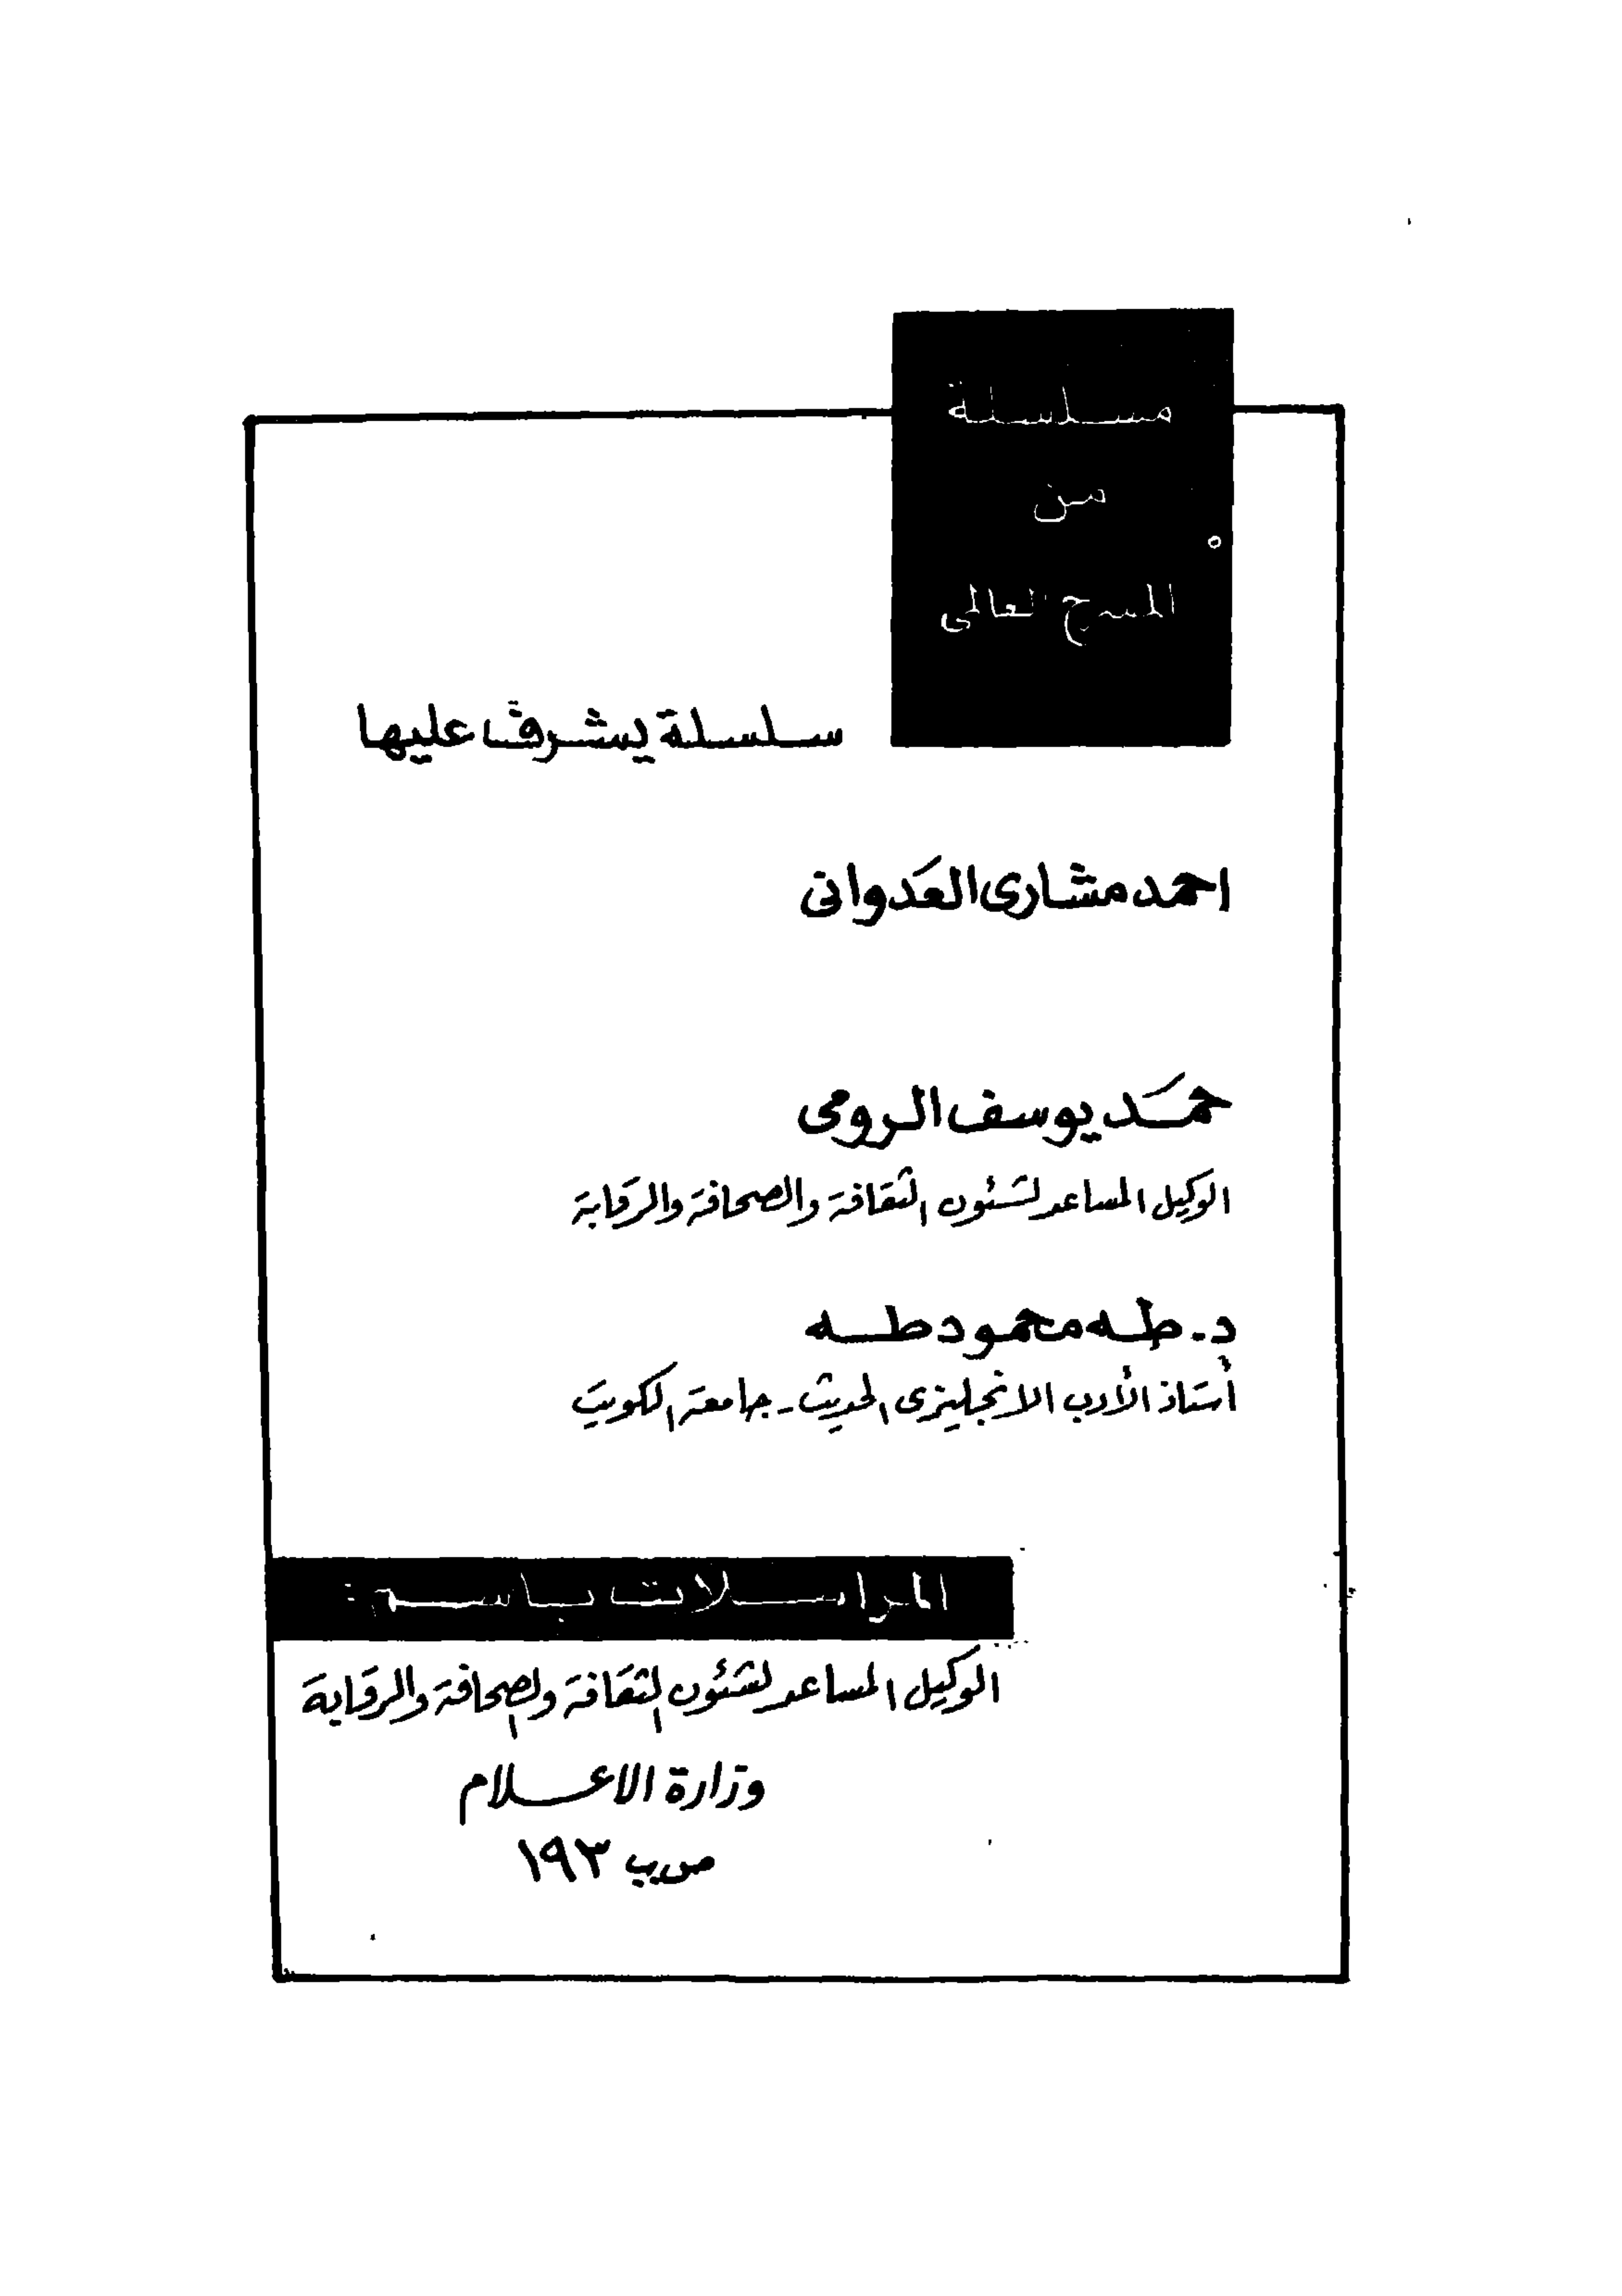 سلسلة
من
المسرح العالمى
سلسلة يشرف عليها
احمد مشارى العدوانى
حمد يوسف الرومى
الوكيل المساعد لشئون الثقافة والصحافة والرقابة
د. طه محمود طه
أستاذ الأدب الانجليزى الحديث - جامعة الكويت
المراسلات باسم:
الوكيل المساعد لشئون الثقافة والصحافة والرقابة
وزارة الاعلام
ص.ب ١٩٣